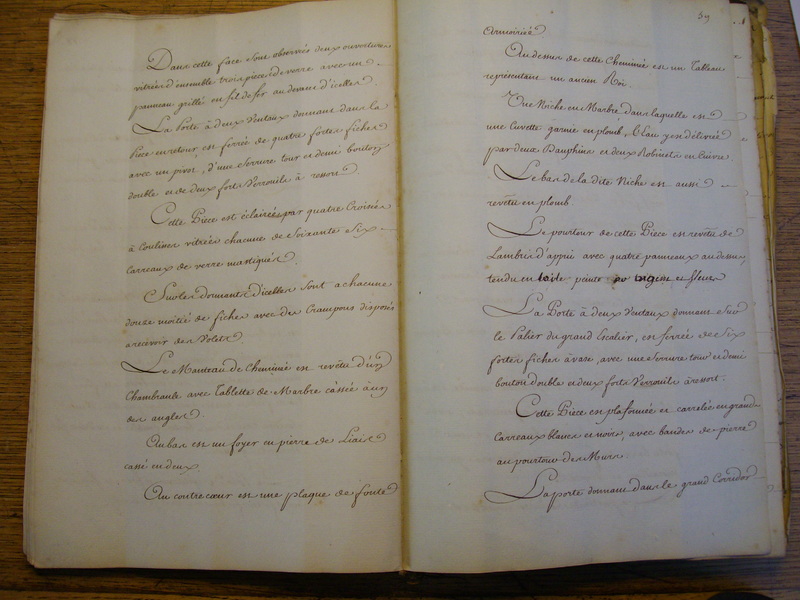 Dans cette face sont observés deux ouvertures
vitrées d'ensemble trois pièces de verre avec un
panneau grillé en fil de fer au devant d'icelles.
La Porte à deux Ventaux donnant dans la
Pièce en retour est ferrée de quatre fortes fiches
avec un pivot, d'une Serrure tour et demi bouton
double et de deux forts Verrouils à ressort.
Cette Pièce est éclairée par quatre Croisées
à Coulisses vitrées chacune de Soixante Six
Carreaux de verre mastiqués.
Sur les dormants d'icelles sont a chacune
douze moitié de fiches avec des Crampons disposés
a recevoir des Volets.
Le Manteau de Cheminée est revêtu d'un
Chambranle avec Tablette de Marbre cassée à un
des angles.
Au bas est un foyer en pierre de Liais
cassé en deux.
Au contrecœur est une plaque de fonte
59
Armoiriée
Au dessus de cette Cheminée est un Tableau
représentant un ancien Roi.
Une Niche en Marbre dans laquelle est
une Cuvette garnie en plomb, L'Eau y est délivrée
par deux Dauphins et deux Robinets en Cuivre.
Le bas de la dite Niche est aussi
revêtu en plomb.
Le pourtour de cette Pièce est revêtu de
Lambris d'appui avec quatre panneaux au dessus,
tendu en toile peinte et fleurs
La Porte à deux Ventaux donnant sur
le Palier du grand Escalier, est ferrée de Six
fortes fiches à vase, avec une Serrure tour et demi
bouton double et deux forts Verrouils à ressort.
Cette Pièce est plafonnée et carrelée en grands
Carreaux blancs et noirs, avec bandes de pierre
au pourtour des Murs.
La porte donnant dans le grand Corridor